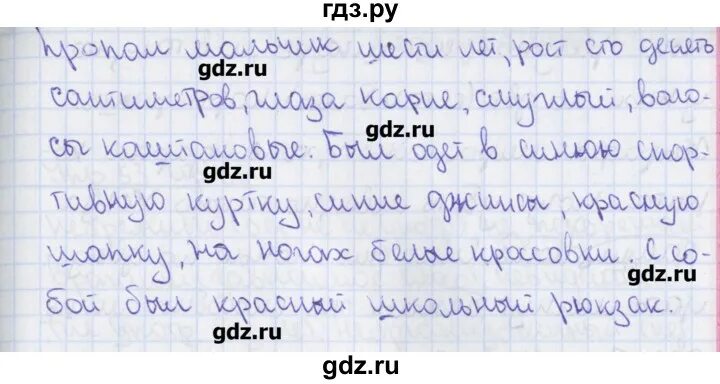 гдз.ру
Пропал мальчик шести лет, рост сто десять
gdz.ru
сантиметров, глаза карие, смуглый, воло-
gdz.ru
сы каштановые. Был одет в синюю спор-
gdz.ru
тивную куртку, синие джинсы, красную
шапку, на ногах белые кроссовки. С со-
gdz.ru
бой был красный школьный рюкзак.
gdz.ru
gdz.ru